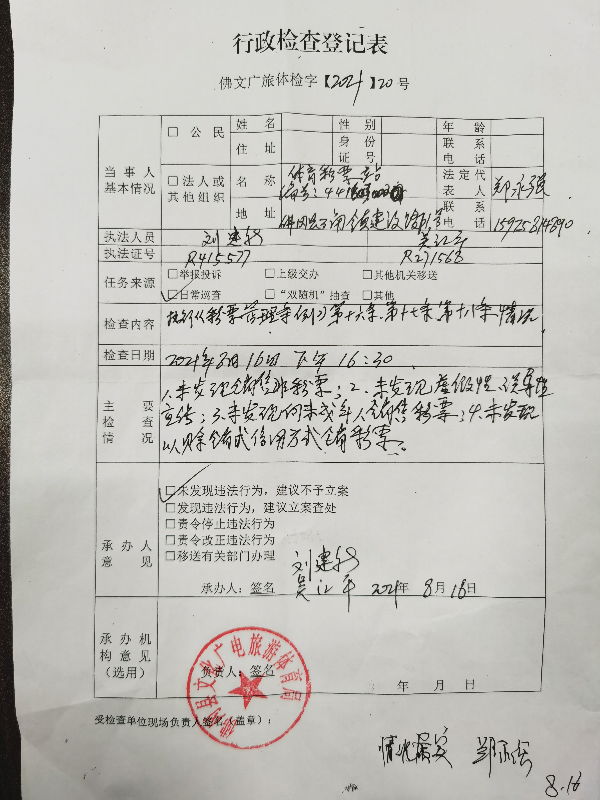 行政检查登记表
佛文广旅体检字【2021】20号
当事人
基本情况
□公民
姓名
性别
年龄
住址
身份
证号
联系
电话
□法人或
其他组织
名称
体育彩票站
编号:44
法定代
表人
郑永强
地址
联系
电话
执法人员
刘建秋
吴江平
执法证号
R415577
R271563
任务来源
□举报投诉 □上级交办 □其他机关移送
□日常巡查 □“双随机”抽查 □其他
检查内容
执行《彩票管理条例》第十六条、第十七条、第十八条情况
检查日期
2021年8月16日 下午 16:30
主要
检查
情况
1、未发现销售非彩票;2、未发现虚假性、误导性
宣传;3、未发现向未成年人销售彩票;4、未发现
以赊销或信用方式销彩票。
承办人
意见
□未发现违法行为,建议不予立案
□发现违法行为,建议立案查处
□责令停止违法行为
□责令改正违法行为
□移送有关部门办理
刘建秋
承办人:签名 吴江平 2021年 8月16日
承办机
构意见
(选用)
佛冈县文化广电旅游体育局
负责人:签名
年 月 日
受检查单位现场负责人签名(盖章):
情况属实 郑永强
8.16